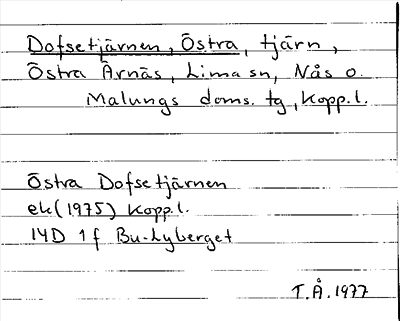 Dofsetjärnen, Östra, tjärn,
Östra Ärnäs, Lima sn, Nås o.
Malungs doms. tg, Kopp.l.
Östra Dofsetjärnen
ek (1975) Kopp.l.
14D 1f Bu-Lyberget
T.Å. 1977